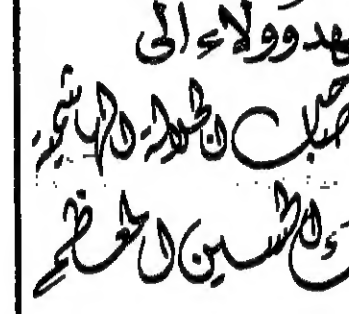 هد وولاء الى
صاحب الجلالة الهاشمية
الحسين المعظم